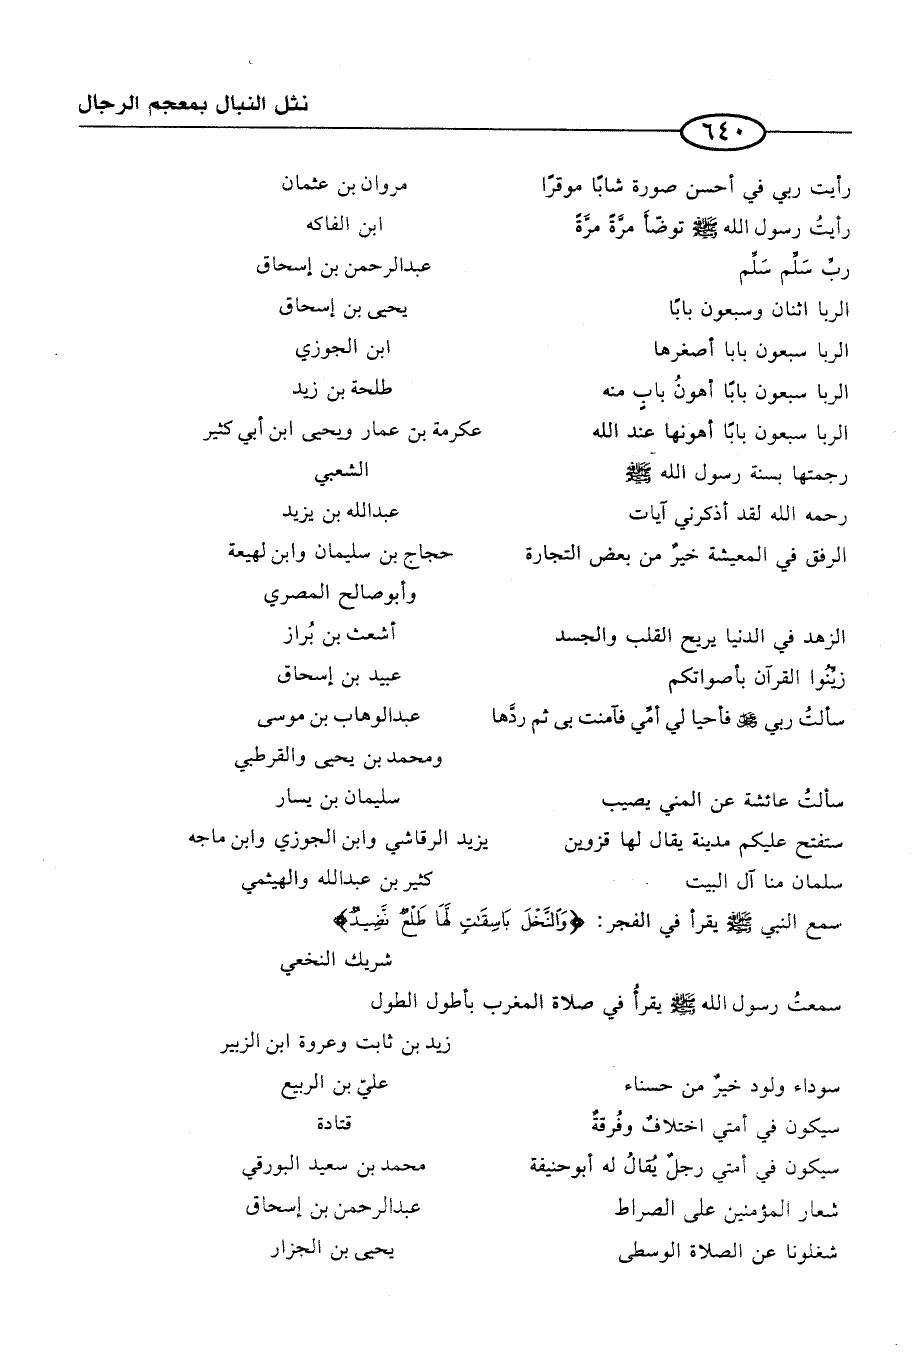 نثل النبال بمعجم الرجال
٦٤٠
رأيت ربي في أحسن صورة شابًا موقرًا مروان بن عثمان
رأيتُ رسول الله ﷺ توضّأ مرَّةً مرَّةً ابن الفاكه
ربِّ سَلِّم سَلِّم عبدالرحمن بن إسحاق
الربا اثنان وسبعون بابًا يحيى بن إسحاق
الربا سبعون بابا أصغرها ابن الجوزي
الربا سبعون بابًا أهونُ بابٍ منه طلحة بن زيد
الربا سبعون بابًا أهونها عند الله عكرمة بن عمار ويحيى ابن أبي كثير
رجمتها بسنة رسول الله ﷺ الشعبي
رحمه الله لقد أذكرني آيات عبدالله بن يزيد
الرفق في المعيشة خيرٌ من بعض التجارة حجاج بن سليمان وابن لهيعة
وأبوصالح المصري
الزهد في الدنيا يريح القلب والجسد أشعث بن بُراز
زيِّنُوا القرآن بأصواتكم عبيد بن إسحاق
سألتُ ربي ﷺ فأحيا لي أمِّي فآمنت بى ثم ردَّها عبدالوهاب بن موسى
ومحمد بن يحيى والقرطبي
سألتُ عائشة عن المني يصيب سليمان بن يسار
ستفتح عليكم مدينة يقال لها قزوين يزيد الرقاشي وابن الجوزي وابن ماجه
سلمان منا آل البيت كثير بن عبدالله والهيثمي
سمع النبي ﷺ يقرأ في الفجر: ﴿وَٱلنَّخْلَ بَاسِقَٰتٍ لَّهَا طَلْعٌ نَّضِيدٌ﴾
شريك النخعي
سمعتُ رسول الله ﷺ يقرأُ في صلاة المغرب بأطول الطول
زيد بن ثابت وعروة ابن الزبير
سوداء ولود خيرٌ من حسناء عليّ بن الربيع
سيكون في أمتي اختلافٌ وفُرقةٌ قتادة
سيكون في أمتي رجلٌ يُقالُ له أبوحنيفة محمد بن سعيد البورقي
شعار المؤمنين على الصراط عبدالرحمن بن إسحاق
شغلونا عن الصلاة الوسطى يحيى بن الجزار